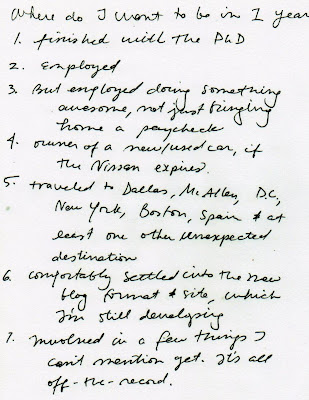 Where do I want to be in 1 year
1. finished with the PhD
2. Employed
3. But employed doing something
awesome, not just bringing
home a paycheck
4. owner of a new/used car, if
the Nissan expires.
5. traveled to Dallas, McAllen, D.C.,
New York, Boston, Spain & at
least one other unexpected
destination
6. comfortably settled into the new
blog format & site, which
I'm still developing
7. involved in a few things I
can't mention yet. It's all
off-the-record.